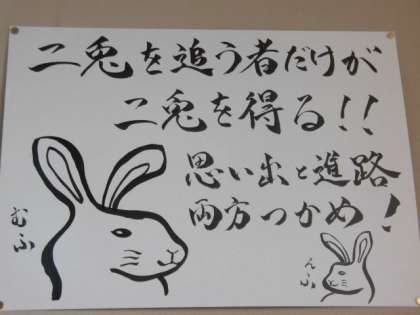 二兎を追う者だけが
二兎を得る!!
思い出と進路
両方つかめ!
むふ
んふ